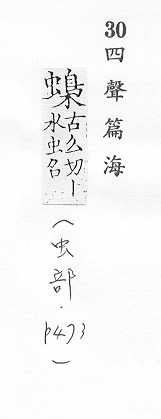 30 四聲篇海
蟂古么切｜
水虫名
(虫部．p473)